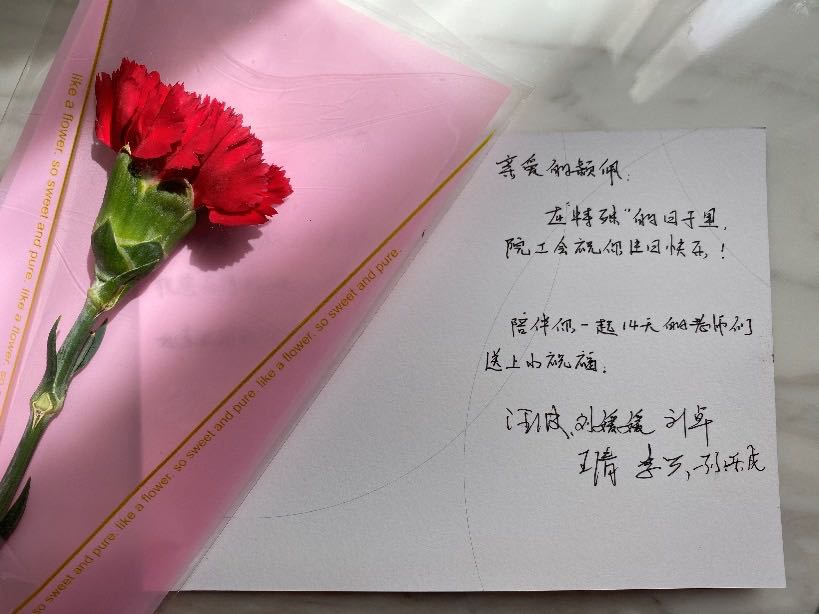 亲爱的颖佩:
在"特殊"的日子里,
院工会祝你生日快乐!
陪伴你一起14天的老师们
送上小祝福:
刘媛媛 刘卓
王倩
like a flower. so sweet and pure. like a flower. so sweet and pure. like a flower. so
like a flower. so sweet and pure. like a flower. so sweet and pure. like a flower. so sweet and pure.